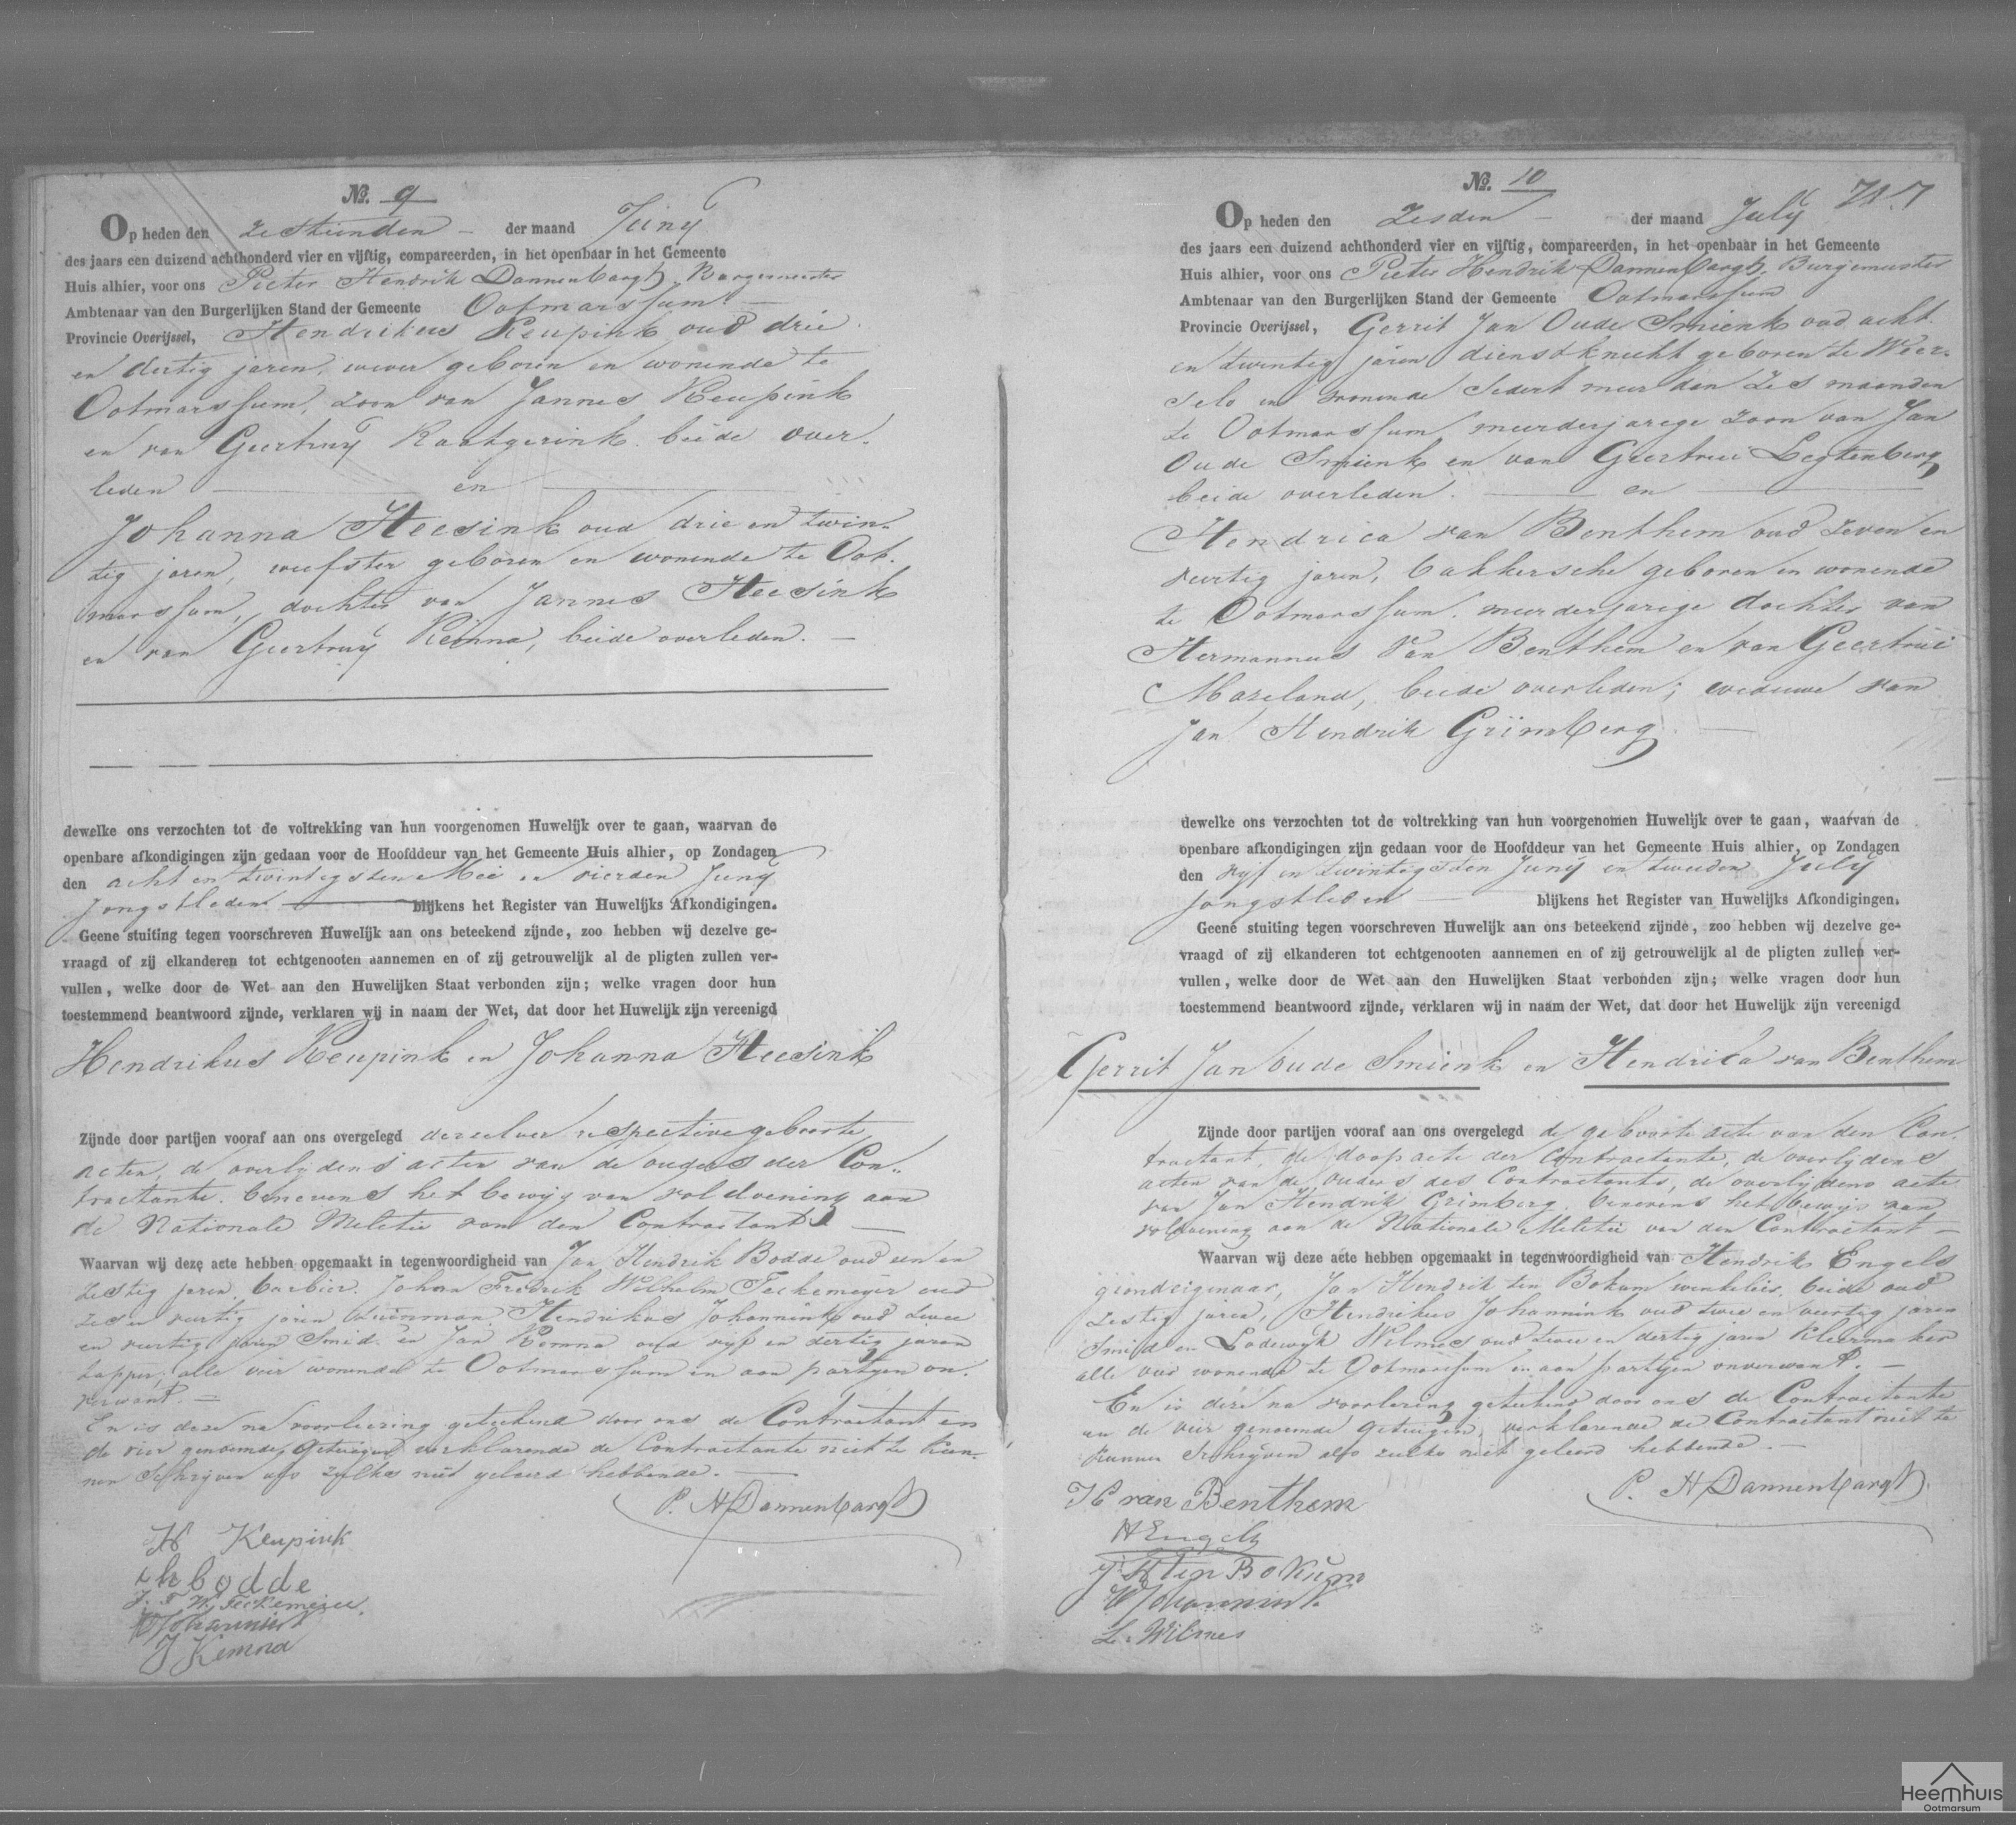 No. 9
Op heden den zestienden der maand Juny
des jaars een duizend achthonderd vier en vijftig, compareerden, in het openbaar in het Gemeente
Huis alhier, voor ons Pieter Hendrik Dannenbargh, Burgemeester
Ambtenaar van den Burgerlijken Stand der Gemeente Ootmarssum
Provincie Overijssel, Hendrikus Keupink oud drie
en dertig jaren, wever geboren en wonende te
Ootmarssum, zoon van Jannes Keupink
en van Geertruy Raatgerink beide over-
leden en
Johanna Heesink oud drie en twin-
tig jaren, weefster geboren en wonende te Oot-
marssum, dochter van Jannes Heesink
en van Geertruy Kemna, beide overleden.
dewelke ons verzochten tot de voltrekking van hun voorgenomen Huwelijk over te gaan, waarvan de
openbare afkondigingen zijn gedaan voor de Hoofddeur van het Gemeente Huis alhier, op Zondagen
den acht en twintigsten Mei en vierden Juny
jongstleden blijkens het Register van Huwelijks Afkondigingen.
Geene stuiting tegen voorschreven Huwelijk aan ons beteekend zijnde, zoo hebben wij dezelve ge-
vraagd of zij elkanderen tot echtgenooten aannemen en of zij getrouwelijk al de pligten zullen ver-
vullen, welke door de Wet aan den Huwelijken Staat verbonden zijn; welke vragen door hun
toestemmend beantwoord zijnde, verklaren wij in naam der Wet, dat door het Huwelijk zijn vereenigd
Hendrikus Keupink en Johanna Heesink
Zijnde door partijen vooraf aan ons overgelegd derzelver respective geboorte
acten, de overlydens acten van de ouders der Con-
tractante, benevens het bewys van voldoening aan
de Nationale Meletie van den Contractant
Waarvan wij deze acte hebben opgemaakt in tegenwoordigheid van Jan Hendrik Bodde oud een en
zestig jaren, barbier, Johan Fredrik Wilhelm Teckemeyer oud
zes en veertig jaren tuinman, Hendrikus Johannink oud twee
en veertig jaren Smid en Jan Kemna oud vyf en dertig jaren
tapper, alle vier wonende te Ootmarssum en aan partyen on-
verwant.
En is deze na voorlezing geteekend door ons de Contractant en
de vier genoemde getuigen, verklarende de Contractante niet te kun-
nen Schrijven als zulks niet geleerd hebbende.
P. H Dannenbargh
H Keupink
J h bodde
J. F. W. Teckemeijer
H Johannink
J Kemna
No. 10
717
Op heden den Zesden der maand July
des jaars een duizend achthonderd vier en vijftig, compareerden, in het openbaar in het Gemeente
Huis alhier, voor ons Pieter Hendrik Dannenbargh, Burgemeester
Ambtenaar van den Burgerlijken Stand der Gemeente Ootmarssum
Provincie Overijssel, Gerrit Jan Oude Smienk oud acht
en twintig jaren dienstknecht geboren te Weer-
selo en wonende sedert meer dan zes maanden
te Ootmarssum meerderjarege zoon van Jan
Oude Smienk en van Geertrui Legtenberg
beide overleden. en
Hendrica van Benthem oud zeven en
veertig jaren, bakkersche geboren en wonende
te Ootmarssum, meerderjarige dochter van
Hermannus Van Benthem en van Geertrui
Maseland, beide overleden; weduwe van
Jan Hendrik Grimberg
dewelke ons verzochten tot de voltrekking van hun voorgenomen Huwelijk over te gaan, waarvan de
openbare afkondigingen zijn gedaan voor de Hoofddeur van het Gemeente Huis alhier, op Zondagen
den vyf en twintigsten Juny en tweeden July
jongstleden blijkens het Register van Huwelijks Afkondigingen.
Geene stuiting tegen voorschreven Huwelijk aan ons beteekend zijnde, zoo hebben wij dezelve ge-
vraagd of zij elkanderen tot echtgenooten aannemen en of zij getrouwelijk al de pligten zullen ver-
vullen, welke door de Wet aan den Huwelijken Staat verbonden zijn; welke vragen door hun
toestemmend beantwoord zijnde, verklaren wij in naam der Wet, dat door het Huwelijk zijn vereenigd
Gerrit Jan oude Smienk en Hendrica van Benthem
Zijnde door partijen vooraf aan ons overgelegd de geboorte acte van den Con-
tractant, de doopacte der Contractante, de overlydens
acten van de ouders des Contractants, de overlijdens acte
van Jan Hendrik Grimberg, benevens het bewijs van
voldoening aan de Nationale Meletie van den Contractant
Waarvan wij deze acte hebben opgemaakt in tegenwoordigheid van Hendrik Engels
grondeigenaar, Jan Hendrik ten Bokum winkelier, beide oud
zestig jaren, Hendrikus Johannink oud twee en veertig jaren
Smid en Lodewyk Wilmes oud twee en dertig jaren kleermaker
alle vier wonende te Ootmarssum en aan partyen onverwant.
En is deze na voorlezing geteekend door ons de Contractante
en de vier genoemde getuigen, verklarende de Contractant niet te
kunnen Schrijven als zulks niet geleerd hebbende.
P. H Dannenbargh
H van Benthem
H Engels
J H ten Bokum
H Johannink
L. Wilmes
Heemhuis
Ootmarsum